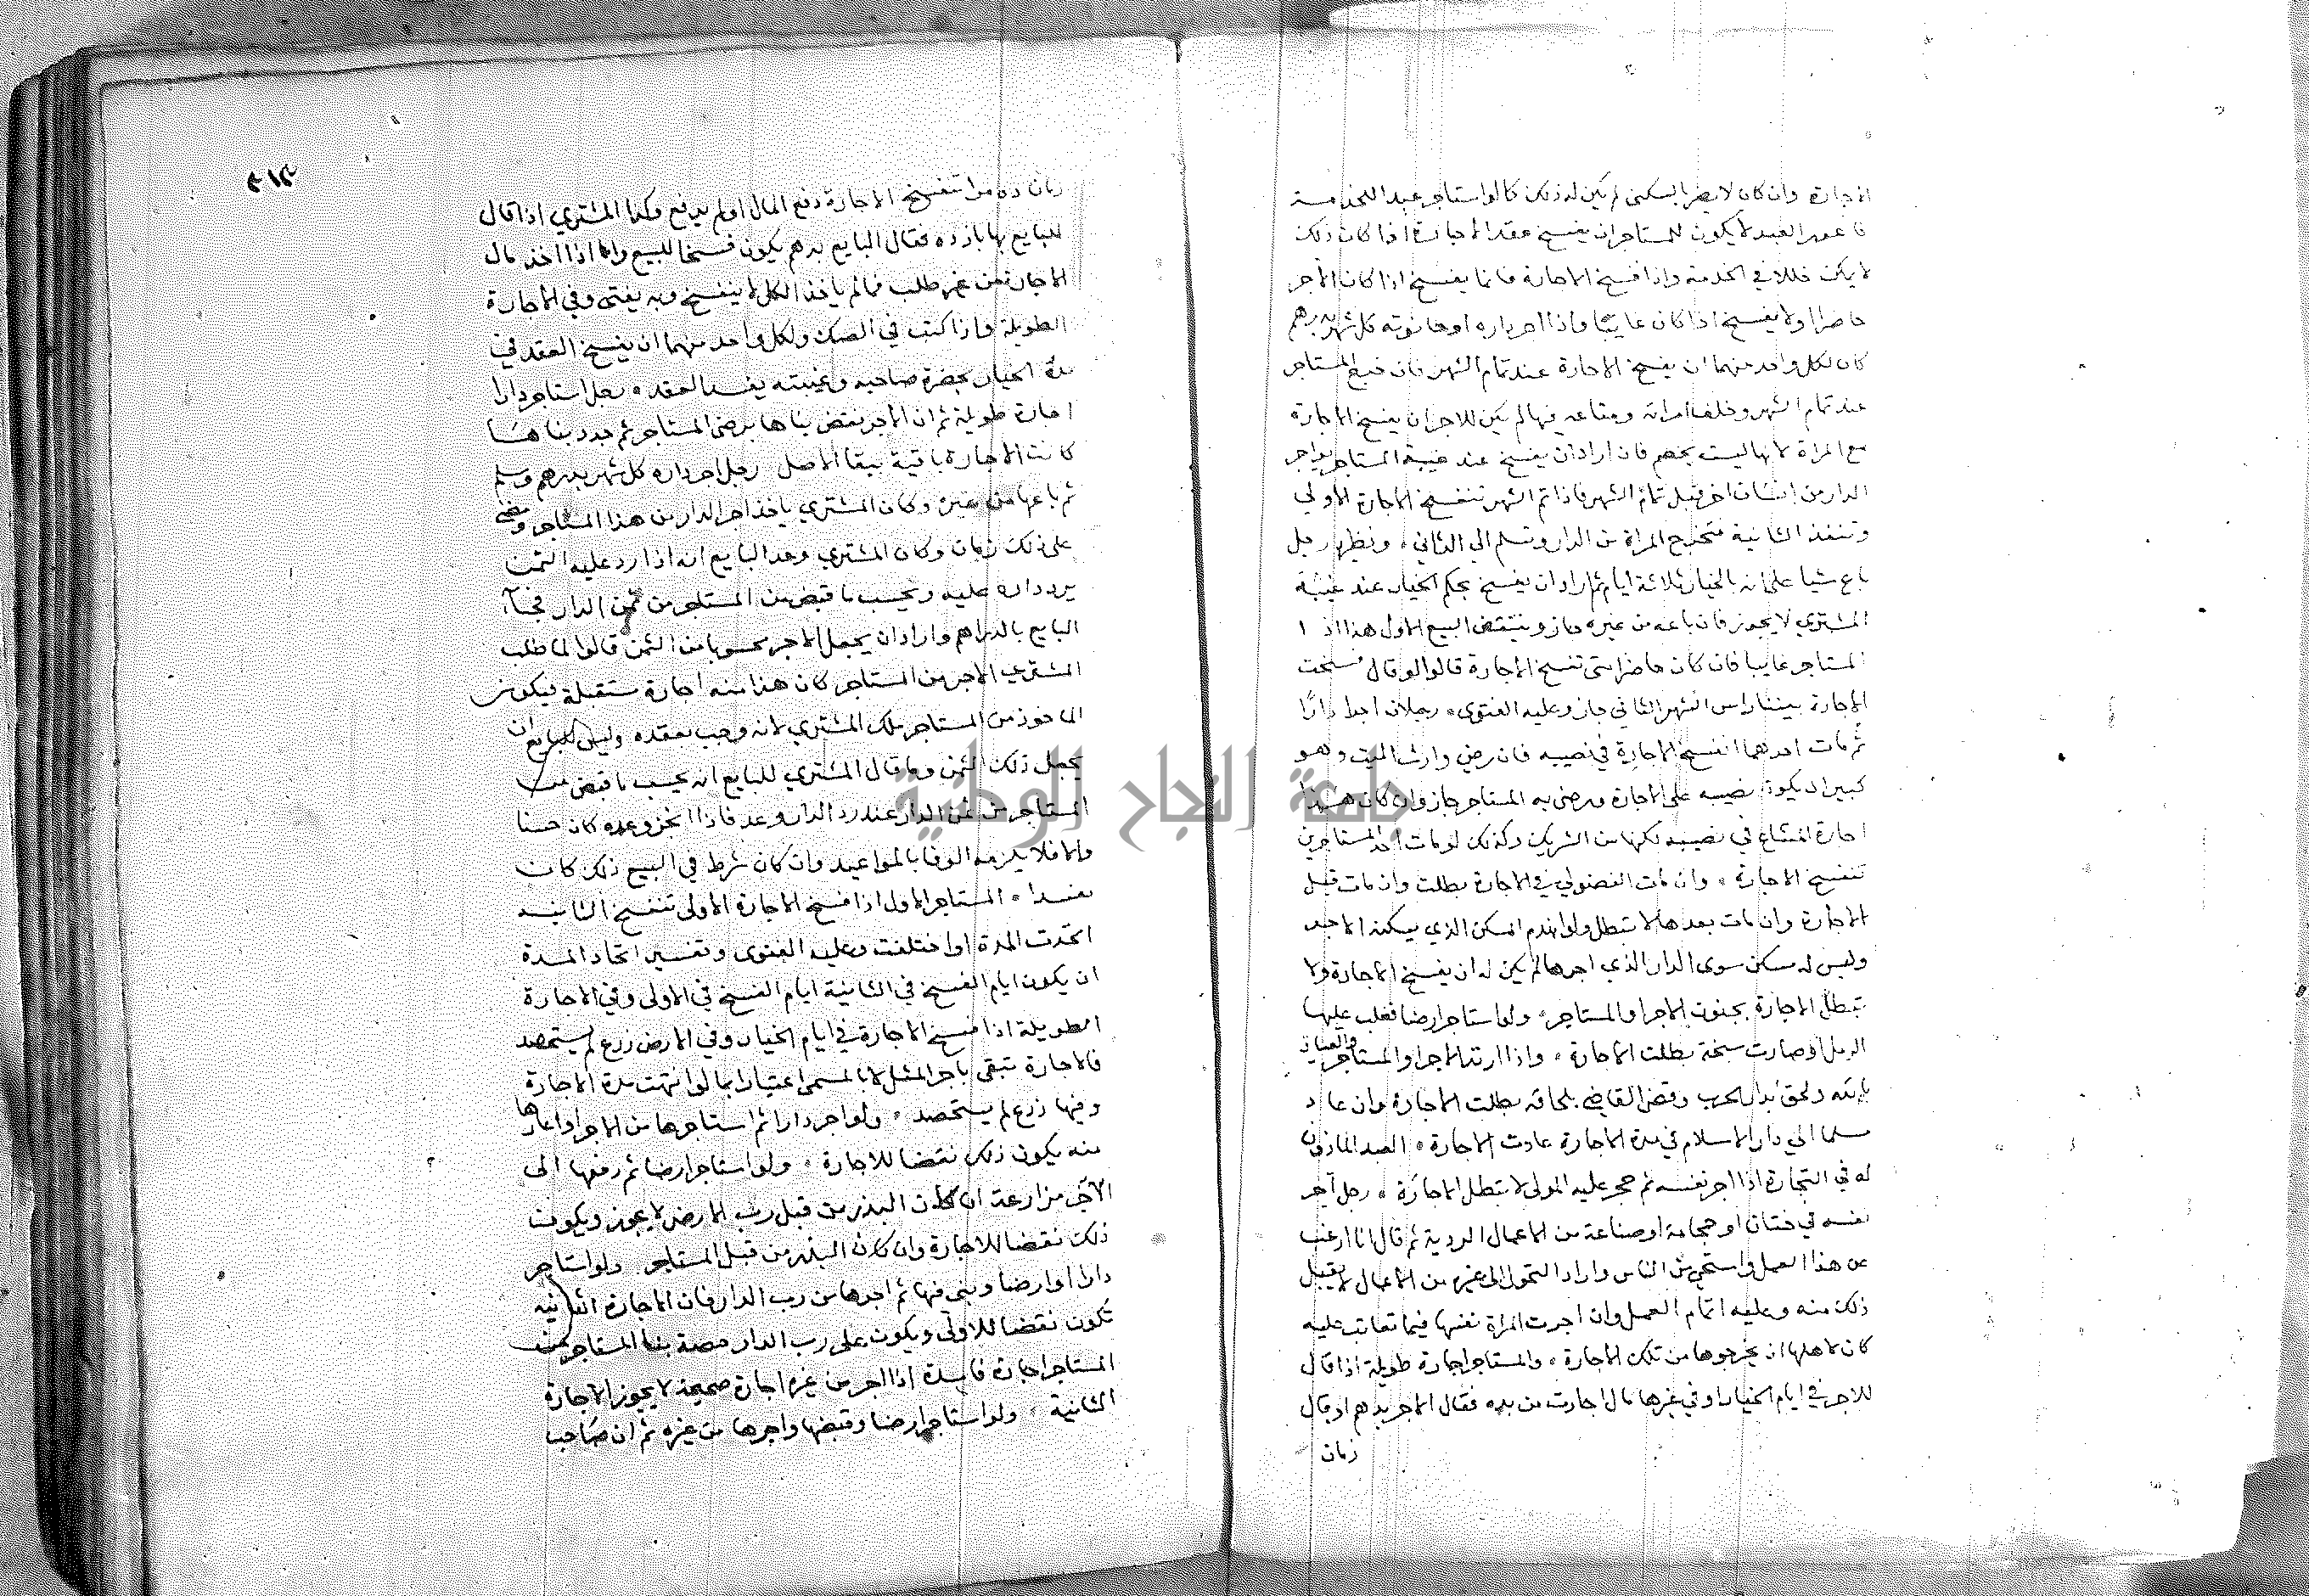 الاجارة وان كان لا يضر بالسكنى لم يكن له ذلك كما لو استاجر عبدا للخدمة
فاعور العبد لا يكون للمستاجر ان يفسخ عقد الاجارة اذا كان ذلك
لا يمكن خللا في الخدمة واذا فسخ الاجارة فانما يفسخ اذا كان الآجر
حاضرا ولا يفسخ اذا كان غايبا واذا اجر داره او حانوته كل شهر بدرهم
كان لكل واحد منهما ان يفسخ الاجارة عند تمام الشهر فان خرج المستاجر
عند تمام الشهر وخلف امراته ومتاعه فيها لم يكن للاجر ان يفسخ الاجارة
مع المراة لانها ليست بخصم فان اراد ان يفسخ عند غيبة المستاجر يواجر
الدار من انسان اخر قبل تمام الشهر فاذا تم الشهر تنفسخ الاجارة الاولى
وتنفذ الثانية فتخرج المراة من الدار وتسلم الي الثاني ونظيرها رجل
باع شيا على انه بالخيار ثلاثة ايام ثم اراد ان يفسخ بحكم الخيار عند غيبة
المشتري لا يجوز فان باعه من غيره جاز وينتقض البيع الاول هذا اذا
المستاجر غايبا فان كان حاضرا متى تفسخ الاجارة قالوا لو قال فسخت
الاجارة بيننا راس الشهر الثاني جاز وعليه الفتوى رجلان اجرا دارا
ثم مات احدهما انفسخ الاجارة في نصيبه فان رضي وارث الميت وهو
كبير ان يكون نصيبه على الاجارة ورضي به المستاجر جاز وان كان هذا
اجارة المشاع في نصيبه لكنها من الشريك وكذلك لو مات احد المستاجرين
تنفسخ الاجارة وان مات الفضولي في الاجارة بطلت وان مات قبل
الاجازة وان مات بعدها لا تبطل ولو انهدم المسكن الذي يسكنه الاجر
وليس له مسكن سوى الدار الذي اجرها لم يكن له ان يفسخ الاجارة ولا
تبطل الاجارة بجنون الاجر او المستاجر ولو استاجر ارضا فغلب عليها
الرمل او صارت سبخة بطلت الاجارة واذا ارتد الاجر او المستاجر والعياذ
بالله ولحق بدار الحرب وقضى القاضي بلحاقه بطلت الاجارة وان عاد
مسلما الي دار الاسلام في مدة الاجارة عادت الاجارة العبد الماذون
له في التجارة اذا اجر نفسه ثم حجر عليه المولى لا تبطل الاجارة رجل آجر
نفسه في ختان او حجامة او صناعة من الاعمال الردية ثم قال انا ارغب
عن هذا العمل واستحي من الناس واراد التحول الى غيره من الاعمال لا يقبل
ذلك منه وعليه اتمام العمل وان اجرت المراة نفسها فيما تعاب عليه
كان لاهلها ان يخرجوها من تلك الاجارة والمستاجر اجارة طويلة اذا قال
للاجر في ايام الخيار او في غيرها مال اجارت من بده فقال الاجر بدهم او قال
زمان
٣١٣
زمان ده مرا تنفسخ الاجارة دفع المال او لم يدفع وكذا المشتري اذا قال
للبايع بها باز ده فقال البايع بدهم يكون فسخا للبيع واما اذا اخذ مال
الاجارة من غير طلب فما لم ياخذ الكل لا ينفسخ وبه يفتى وفي الاجارة
الطويلة واذا كتب في الصك ولكل واحد منهما ان يفسخ العقد في
مدة الخيار بحضرة صاحبه وغيبته يفسد العقد رجل استاجر دارا
اجارة طويلة ثم ان الاجر نقض بناها برضى المستاجر ثم جدد بناها
كانت الاجارة باقية ببقا الاصل رجل اجر داره كل شهر بدرهم وسلم
ثم باعها من غيره وكان المشتري ياخذ اجر الدار من هذا المستاجر ومضى
على ذلك زمان وكان المشتري وعد البايع انه اذا رد عليه الثمن
يرد داره عليه ويحسب ما قبض من المستاجر من ثمن الدار فجآء
البايع بالدراهم واراد ان يجعل الاجر محسوبا من الثمن قالوا لما طلب
المشتري الاجر من المستاجر كان هذا منه اجارة مستقبلة فيكون
الماخوذ من المستاجر ملك المشتري لانه وجب بعقده وليس للبايع ان
يجعل ذلك الثمن وما قال المشتري للبايع انه يحسب ما قبض من
المستاجر من ثمن الدار عند رد الدار وعد فاذا انجز وعده كان حسنا
والا فلا يلزمه الوفا بالمواعيد وان كان شرط في البيع ذلك كان
مفسدا المستاجر الاول اذا فسخ الاجارة الاولى تنفسخ الثانية
اتحدت المدة او اختلفت وعليه الفتوى وتفسير اتحاد المدة
ان يكون ايام الفسخ في الثانية ايام الفسخ في الاولى وفي الاجارة
الطويلة اذا فسخ الاجارة في ايام الخيار وفي الارض زرع لم يستحصد
فالاجارة تبقى باجر المثل لا بالمسمى اعتبارا بما لو انتهت مدة الاجارة
وفيها زرع لم يستحصد ولو اجر دارا ثم استاجرها من الاجر او اعارها
منه يكون ذلك نقضا للاجارة ولو استاجر ارضا ثم دفعها الى
الآجر مزارعة ان كان البذر من قبل رب الارض لا يجوز ويكون
ذلك نقضا للاجارة وان كان البذر من قبل المستاجر ولو استاجر
دارا او ارضا وبنى فيها ثم اجرها من رب الدار فان الاجارة الثانية
تكون نقضا للاولى ويكون على رب الدار حصة بنا المستاجر
المستاجر اجارة فاسدة اذا اجر من غيره اجارة صحيحة لا يجوز الاجارة
الثانية ولو استاجر ارضا وقبضها واجرها من غيره ثم ان صاحب
جامعة النجاح الوطنية